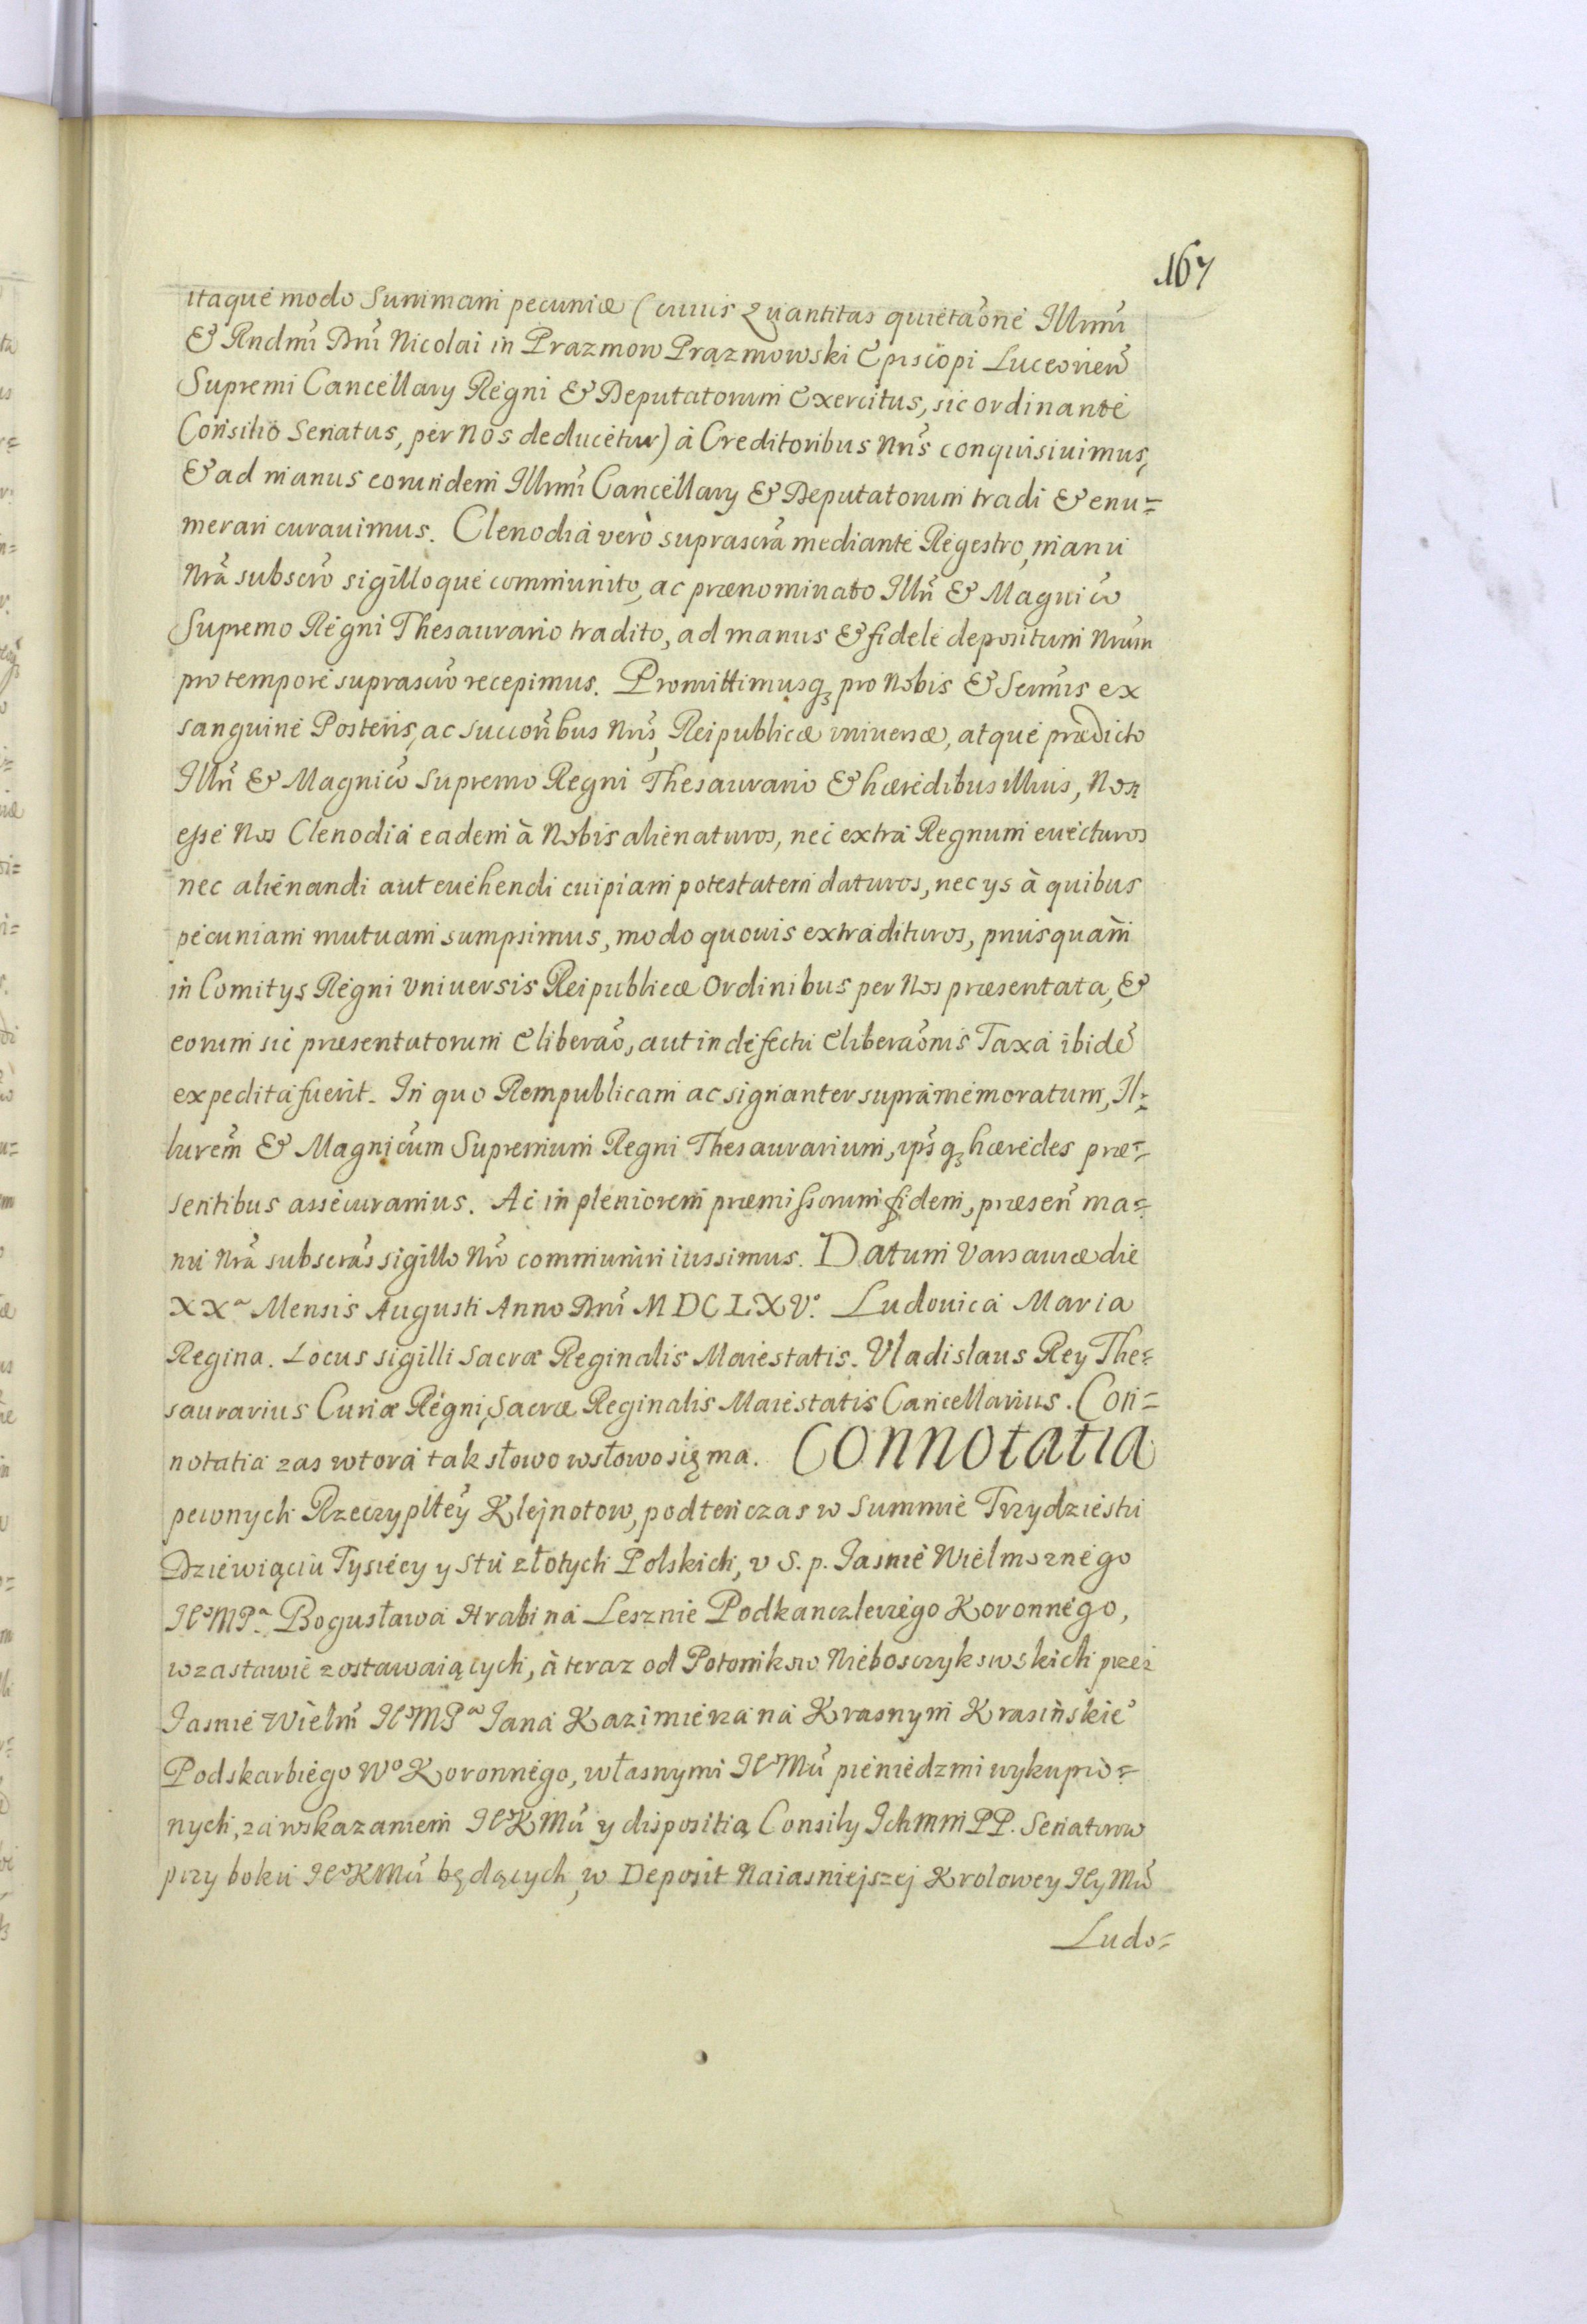 167
itaque modo Summam pecuniæ (cuius Quantitas quietaōne Illrmi
& Rndmi Dni Nicolai in Prazmow Prazmowski Episcopi Luceorien̄
Supremi Cancellary Regni & Deputatorum Exercitus, sic ordinante
Consilio Senatus, per Nos deducetur) à Creditoribus Nris conquisiuimus,
& ad manus eorundem Illrmi Cancellary & Deputatorum tradi & enu=
merari curauimus. Clenodia verò suprascra mediante Regestro, manu
Nrã subscro sigilloque communito, ac prænominato Illri & Magnico
Supremo Regni Thesaurario tradito, ad manus & fidele depositum Nrum
pro tempore suprascro recepimus. Promittimusq3 pro Nobis & Sermis ex
sanguine Posteris, ac succoribus Nris, Reipublicæ vniuersæ, atque prædicto
Illri & Magnico Supremo Regni Thesaurario & hæredibus illius, Non
esse Nos Clenodia eadem à Nobis alienaturos, nec extra Regnum euecturos
nec alienandi aut euehendi cuipiam potestatem daturos, nec ys à quibus
pecuniam mutuam sumpsimus, modo quouis extradituros, priusquam
in Comitys Regni Vniuersis Reipublicæ Ordinibus per Nos præsentata, &
eorum sic præsentatorum Eliberaõ, aut in defectu Eliberaõnis Taxa ibidē
expedita fuerit. In quo Rempublicam ac signanter supràmemoratum, Il=
lurem & Magnicum Supremum Regni Thesaurarium, ipsq3 hæredes præ=
sentibus assecuramus. Ac in pleniorem præmissorum fidem, præsen̄ ma=
nu Nrã subscras sigillo Nro communiri iussimus. Datum Varsauiæ die
XXa Mensis Augusti Anno Dni MDCLXVo. Ludouica Maria
Regina. Locus sigilli Sacræ Reginalis Maiestatis. Vladislaus Rey The=
saurarius Curiæ Regni, Sacræ Reginalis Maiestatis Cancellarius. Con=
notatia zas wtora tak słowo wsłowo się ma. Connotatia
pewnych Rzeczypltey Klejnotow, podtenczas w Summie Trzydziestu
Dziewiąciu Tysięcy y stu złotych Polskich, v S. p. Jasnie Wielmoznego
JEoMPa Bogusława Hrabi na Lesznie Podkanczlerzego Koronnego,
wzastawie zostawaiących, à teraz od Potomkow Nieboszczykowskich przez
Jasnie Wielm JEoMPa Jana Kazimierza na Krasnym Krasińskieo
Podskarbiego Wo Koronnego, własnymi JEoMu pieniedzmi wykupio=
nych, za wskazaniem JEoKMu y dispositią Consily JchmmPP. Senatorow
przy boku JEoKMu będących, w Deposit Naiasniejszej Krolowey JEyMu
Ludo=